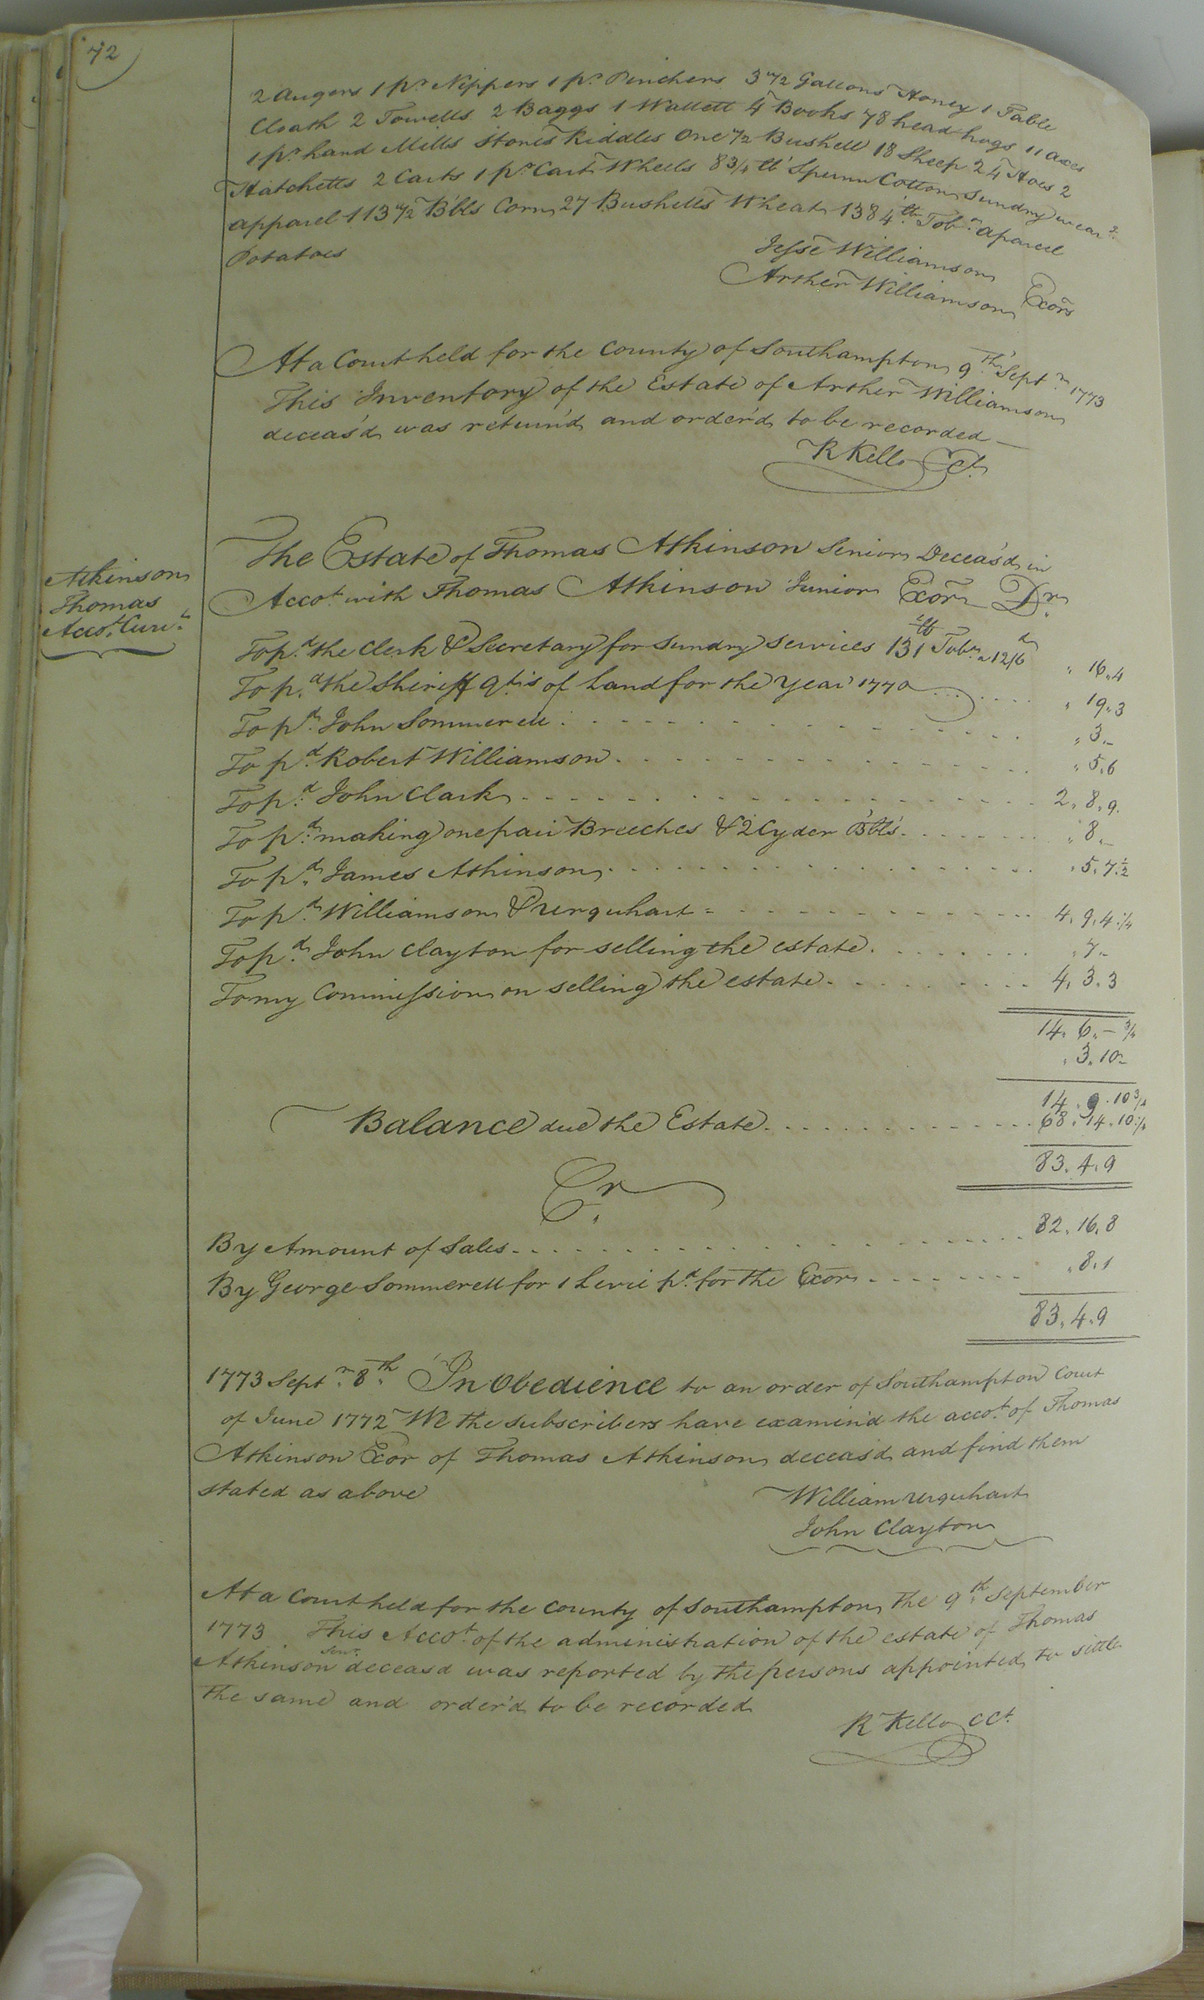 72
2 Augers 1 pr. Nippers 1 pr. Pinchers 3 1/2 Gallons Honey 1 Table
Cloath 2 Towells 2 Baggs 1 Wallett 4 Books 78 head hogs 11 axes
1 pr. hand Mills Stones Riddles One 1/2 Bushell 18 Sheep 24 Hoes 2
Hatchetts 2 Carts 1 pr. Cart Wheels 8 3/4 lb Spunn Cotton Sundry wear.g
apparel 113 1/2 Bbls Corn 27 Bushells Wheat 1384 lb Tob.o a parcel
Potatoes
Jesse Williamson
Arther Williamson Exors
At a Court held for the County of Southampton 9th Septr. 1773
This Inventory of the Estate of Arther Williamson
deceas'd was return'd and order'd to be recorded
R Kello CCt.
Atkinson
Thomas
Accot. Curt.
The Estate of Thomas Atkinson Senior Deceas'd in
Accot. with Thomas Atkinson Junior Exor Dr.
To pd. the Clerk & Secretary for Sundry Services 131 lb Tobo. 12/6 d " 16 " 4
To pd. the Sheriff Qts of Land for the Year 1770 . . . . " 19 " 3
To pd. John Sommerell . . . . " 3 " -
To pd. Robert Williamson . . . . " 5 " 6
To pd. John Clark . . . . 2 " 8 " 9
To pd. making one pair Breeches & 2 Cyder Bbls . . . . " 8 " -
To pd. James Atkinson . . . . " 5 " 7 1/2
To pd. Williamson & Urquhart . . . . 4 " 9 " 4 1/4
To pd. John Clayton for selling the estate . . . . " 7 " -
To my Commission on selling the estate . . . . 4 " 3 " 3
14 " 6 " - 3/4
" 3 " 10 -
14 " 9 " 10 3/4
Balance due the Estate . . . . 68 " 14 " 10 1/4
83 " 4 " 9
Cr.
By Amount of Sales . . . . 82 " 16 " 8
By George Sommerell for 1 Levie pd. for the Exor . . . . " 8 " 1
83 " 4 " 9
1773 Septr. 8th. In Obedience to an order of Southampton Court
of June 1772 We the subscribers have examin'd the accot. of Thomas
Atkinson Exor of Thomas Atkinson deceas'd and find them
stated as above
William Urquhart
John Clayton
At a Court held for the County of Southampton the 9th. September
1773 This Accot. of the administration of the estate of Thomas
Atkinson Senr. deceas'd was reported by the persons appointed to settle
the same and order'd to be recorded
R Kello CCt.